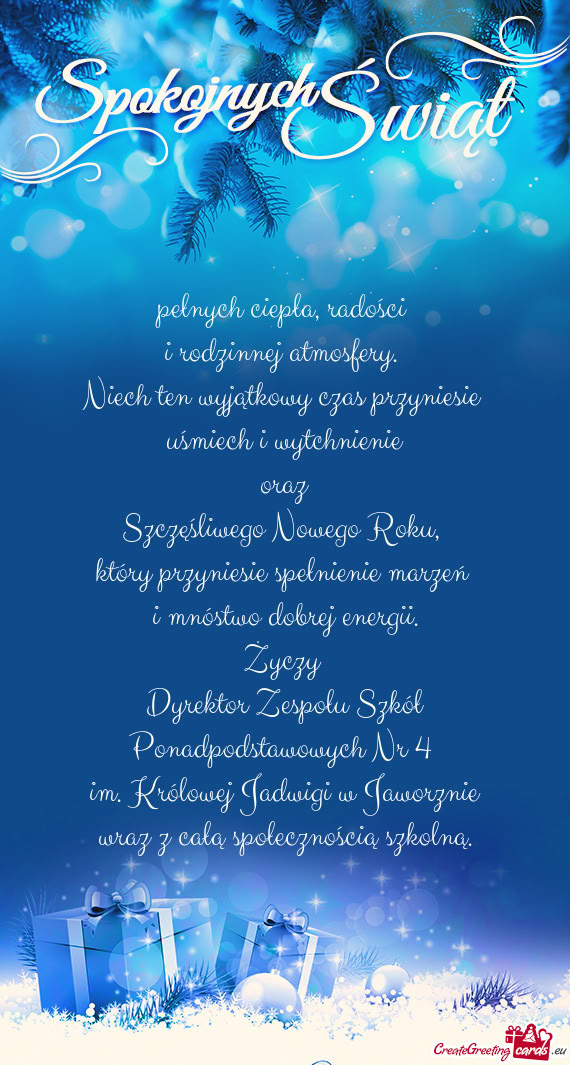 Spokojnych Świąt
pełnych ciepła, radości
i rodzinnej atmosfery.
Niech ten wyjątkowy czas przyniesie
uśmiech i wytchnienie
oraz
Szczęśliwego Nowego Roku,
który przyniesie spełnienie marzeń
i mnóstwo dobrej energii.
Życzy
Dyrektor Zespołu Szkół
Ponadpodstawowych Nr 4
im. Królowej Jadwigi w Jaworznie
wraz z całą społecznością szkolną.
CreateGreeting cards .eu